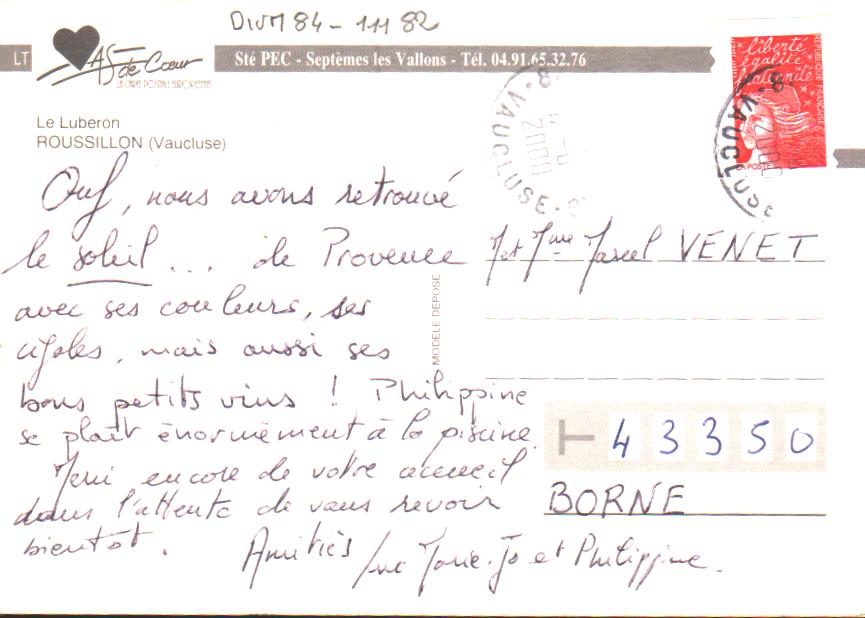 DIVM 84 - 111 82
LT
AS de Cœur
LA CARTE POSTALE EUROPEENNE
Sté PEC - Septèmes les Vallons - Tél. 04.91.65.32.76
Le Luberon
ROUSSILLON (Vaucluse)
liberté
égalité
fraternité
REPUBLIQUE FRANÇAISE
LA POSTE
VAUCLUSE
2000
VAUCLUSE
Ouf, nous avons retrouvé
le soleil ... de Provence
avec ses couleurs, ses
cigales, mais aussi ses
bons petits vins ! Philippine
se plaît énormément à la piscine.
Merci encore de votre accueil
dans l'attente de vous revoir
bientôt.
Amitiés Luc Marie-Jo et Philippine.
MODELE DEPOSE
M et Mme Marcel VENET
43350
BORNE